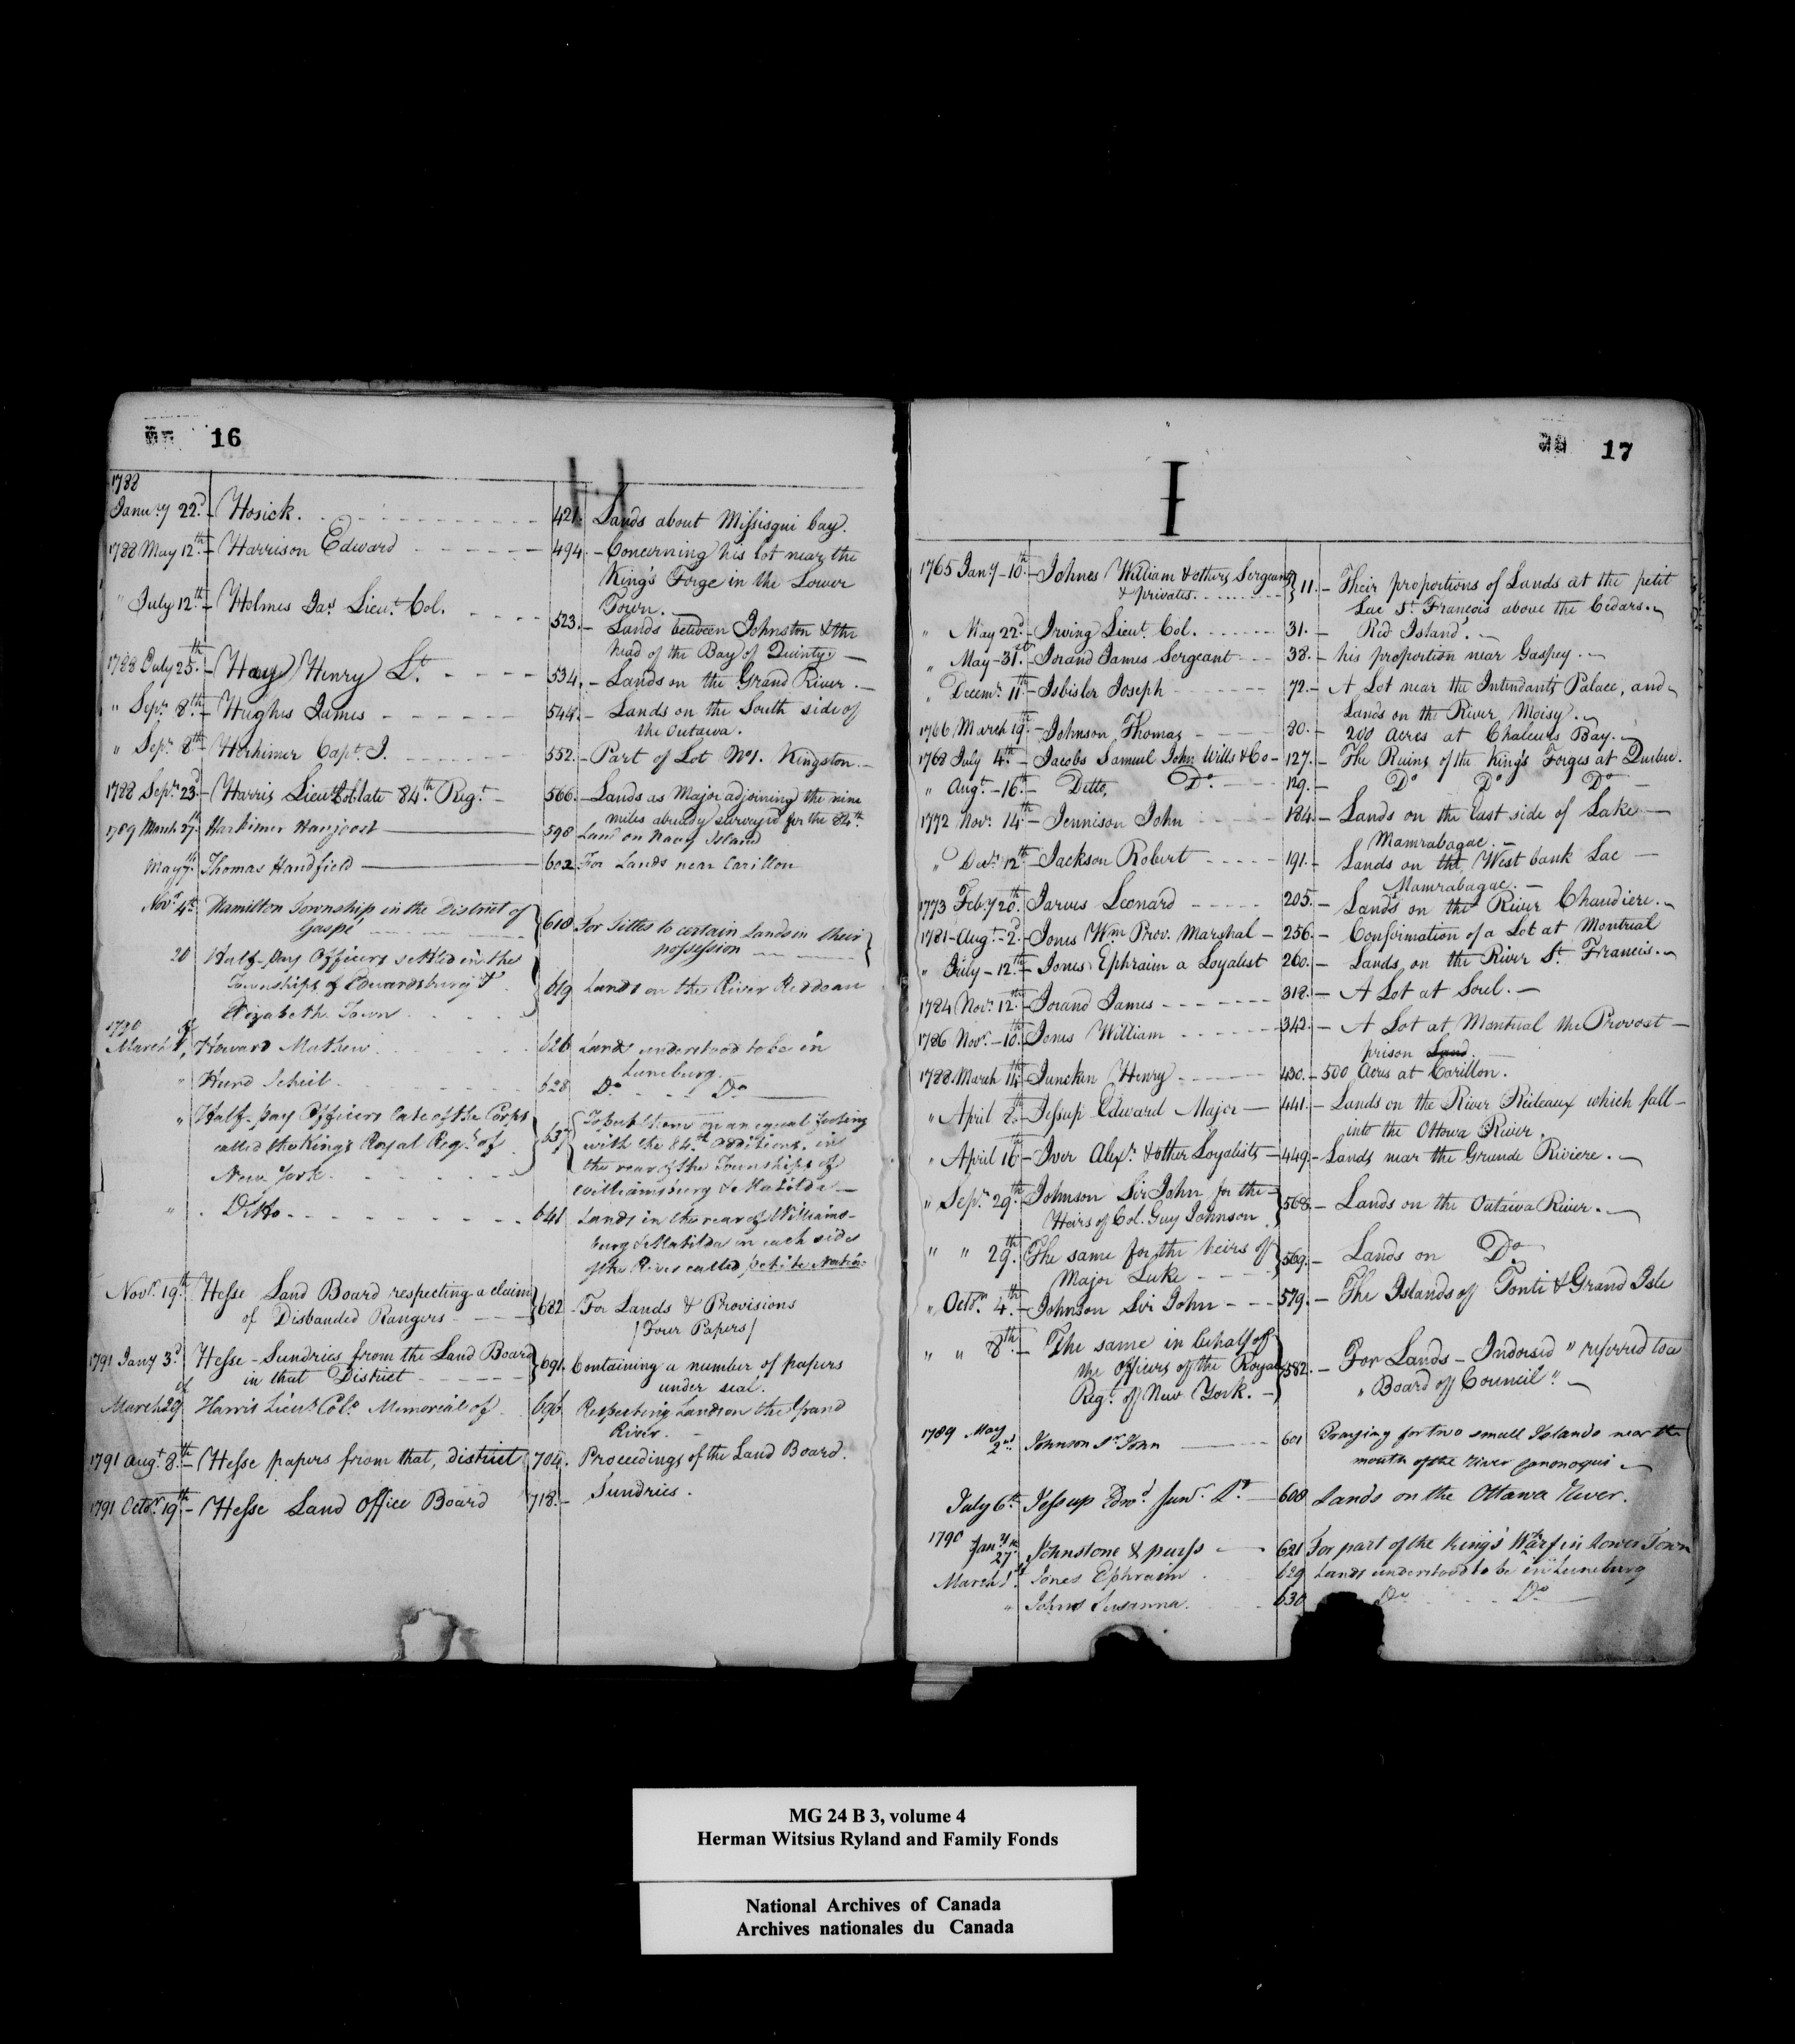 16
H
1788
Janu.ry 22.d - Hosick. 421. Lands about Missisqui bay.
1788 May 12.th - Harrison Edward 494. - Concerning his lot near the
King's Forge in the Lower
Town. -
" July 12.th - Holmes Jas. Lieu.t Col. 523. - Lands between Johnston & the
head of the Bay of Quinty. -
1788 July 25.th - Hay Henry L.t 534. - Lands on the Grand River. -
" Sep.r 8.th - Hughes James 544. - Lands on the South side of
the Outawa.
" Sep.r 8.th - Herkimer Cap.t J. 552. - Part of Lot No 1. Kingston. -
1788 Sep.r 23.d - Harris Lieu.t Col. late 84.th Reg.t - 566. - Lands as Major adjoining the nine
miles already surveyed for the 84.th
1789 March 27.th Harkimer Hanjoost 598 Land on Navy Island
May 7.th Thomas Handfield 602 For Lands near Carillon
Nov.r 4.th Hamilton Township in the District of
Gaspé 618 For Titles to certain Lands in their
possession
20 Half-pay Officers settled in the
Townships of Edwardsburg &
Elizabeth Town 619 Lands on the River Reddoan
1790
March 1.st, Howard Mathew 626 Lands understood to be in
Luneburg.
" Hurd 628 D.o D.o
" Half-pay Officers late of the Corps
called the Kings Royal Reg.t of
New York 637 To put them on an equal footing
with the 84.th additions, in
the rear of the Townships of
Williamsburg & Matilda -
" Ditto 641 Lands in the rear of Williams-
burg & Matilda on each side
of the River called petite Nation
Nov.r 19.th Hesse Land Board respecting a claim
of Disbanded Rangers 682 - For Lands & Provisions
/Four Papers/
1791 Jan.y 3.d Hesse - Sundries from the Land Board
in that District 691. Containing a number of papers
under seal.
March 29 Harris Lieu.t Col.o Memorial of 696 Respecting Lands on the Grand
River.
1791 Aug.t 8.th - Hesse papers from that, district 704. Proceedings of the Land Board.
1791 Octo.r 19.th - Hesse Land Office Board 718. - Sundries.
17
I
1765 Jan.y - 10.th - Johnes William & others Sergeants
& privates 11. - Their proportions of Lands at the petit
Lac S.t Francois above the Cedars. -
" May 22.d - Irving Lieu.t Col. 31. - Red Island. -
" May - 31.st - Jorand James Sergeant 38. - his proportion near Gaspey. -
" Decem.r 11.th - Isbister Joseph 72. - A Lot near the Intendants Palace, and
Lands on the River Moisy. -
1766 March 19.th - Johnson Thomas 80. - 200 Acres at Chaleurs Bay. -
1768 July 4.th - Jacobs Samuel John Wills & Co - 127. - The Ruins of the King's Forges at Quebec.
" Aug.t - 16.th - Ditto, D.o 129. - D.o D.o D.o
1772 Nov.r 14.th - Jennison John 184. - Lands on the East side of Lake -
Mamrabagac. -
" Dec.r 12.th - Jackson Robert 191. - Lands on the West bank Lac -
Mamrabagac. -
1773 Feb.y 20.th Jarves Leonard 205. - Lands on the River Chaudiere. -
1781 - Aug.t - 2.d - Jones W.m Prov. Marshal - 256. - Confirmation of a Lot at Montreal
" July - 12.th - Jones Ephraim a Loyalist 260. - Lands on the River S.t Francis. -
1784 Nov.r 12.th - Jorand James 318. - A Lot at Sorel. -
1786 Nov.r - 10.th - Jones William 342. - A Lot at Montreal the Provost -
prison Land
1788 March 14.th - Juncken Henry 430. - 500 Acres at Carillon.
" April 2.d - Jessup Edward Major - 441. - Lands on the River Rideaux which fall -
into the Ottowa River.
" April 16.th - Iver Alex.r & other Loyalists - 449. - Lands near the Grande Riviere. -
" Sep.r 29.th Johnson Sir John for the -
Heirs of Col. Guy Johnson 568. - Lands on the Outáwa River. -
" " 29.th The same for the heirs of
Major Luke 569. - Lands on D.o
" Octo.r 4.th - Johnson Sir John 579. - The Islands of Tonti & Grand Isle
" " 8.th - The same in behalf of
the Officers of the Royal
Reg.t of New York. - 582. - For Lands - Indorsed " referred to a
" Board of Council " -
1789 May
2.nd Johnson S.r John 601 Praying for two small Islands near the
mouth of the River Canonoqui -
July 6.th Jessup Edw.d Jun.r L.t 608 Lands on the Ottawa River.
1790 Jan.y
27.th Johnstone & purss 621 For part of the King's Warf in Lower Town
March 1.st Jones Ephraim 629 Lands understood to be in Luneburg
" Johns Susanna 630 D.o D.o
MG 24 B 3, volume 4
Herman Witsius Ryland and Family Fonds
National Archives of Canada
Archives nationales du Canada